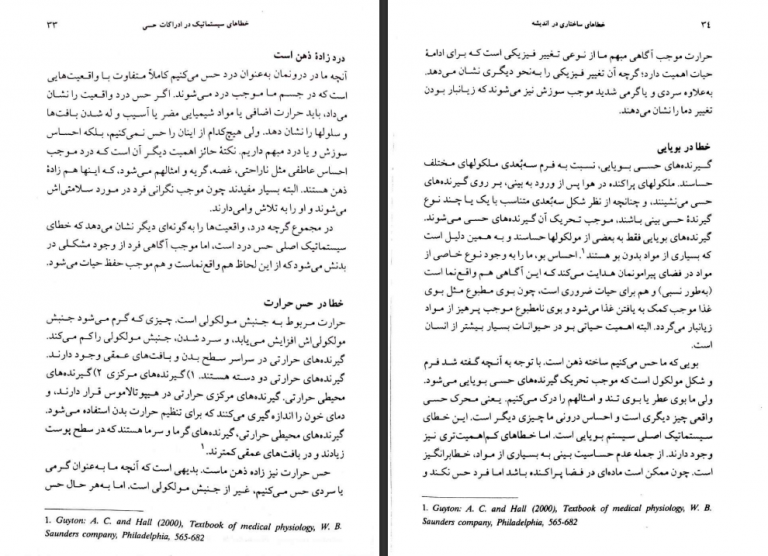 خطاهای سیستماتیک در ادراکات حسی ۳۳
درد زادهٔ ذهن است
آنچه ما در درونمان به‌عنوان درد حس می‌کنیم کاملاً متفاوت با واقعیت‌هایی
است که در جسم ما موجب درد می‌شوند. اگر حس درد واقعیت را نشان
می‌داد، باید حرارت اضافی یا مواد شیمیایی مضر یا آسیب و له شدن بافت‌ها
و سلولها را نشان دهد. ولی هیچ‌کدام از اینان را حس نمی‌کنیم، بلکه احساس
سوزش و یا درد مبهم داریم. نکتهٔ حائز اهمیت دیگر آن است که درد موجب
احساس عاطفی مثل ناراحتی، غصه، گریه و امثالهم می‌شود، که اینها هم زادهٔ
ذهن هستند. البته بسیار مفیدند چون موجب نگرانی فرد در مورد سلامتی‌اش
می‌شوند و او را به تلاش وامی‌دارند.
در مجموع گرچه درد، واقعیت‌ها را به‌گونه‌ای دیگر نشان می‌دهد که خطای
سیستماتیک اصلی حس درد است، اما موجب آگاهی فرد از وجود مشکلی در
بدنش می‌شود که از این لحاظ هم واقع‌نماست و هم موجب حفظ حیات می‌شود.
خطا در حس حرارت
حرارت مربوط به جنبش مولکولی است. چیزی که گرم می‌شود جنبش
مولکولی‌اش افزایش می‌یابد، و سرد شدن، جنبش مولکولی را کم می‌کند.
گیرنده‌های حرارتی در سراسر سطح بدن و بافت‌های عمقی وجود دارند.
گیرنده‌های حرارتی دو دسته هستند. ۱) گیرنده‌های مرکزی ۲) گیرنده‌های
محیطی حرارتی. گیرنده‌های مرکزی حرارتی در هیپوتالاموس قرار دارند، و
دمای خون را اندازه‌گیری می‌کنند که برای تنظیم حرارت بدن استفاده می‌شود.
گیرنده‌های محیطی حرارتی، گیرنده‌های گرما و سرما هستند که در سطح پوست
زیادند و در بافت‌های عمقی کمترند.۱
حس حرارت نیز زاده ذهن ماست. بدیهی است که آنچه ما به‌عنوان گرمی
یا سردی حس می‌کنیم، غیر از جنبش مولکولی است. اما به‌هر حال حس
1. Guyton: A. C. and Hall (2000), Textbook of medical physiology, W. B.
Saunders company, Philadelphia, 565-682
۳۴ خطاهای ساختاری در اندیشه
حرارت موجب آگاهی مبهم ما از نوعی تغییر فیزیکی است که برای ادامهٔ
حیات اهمیت دارد؛ گرچه آن تغییر فیزیکی را به‌نحو دیگری نشان می‌دهد.
به‌علاوه سردی و یا گرمی شدید موجب سوزش نیز می‌شوند که زیانبار بودن
تغییر دما را نشان می‌دهند.
خطا در بویایی
گیرنده‌های حسی بویایی، نسبت به فرم سه‌بُعدی ملکولهای مختلف
حساسند. ملکولهای پراکنده در هوا پس از ورود به بینی، بر روی گیرنده‌های
حسی می‌نشینند، و چنانچه از نظر شکل سه‌بُعدی متناسب با یک یا چند نوع
گیرندهٔ حسی بینی باشند، موجب تحریک آن گیرنده‌های حسی می‌شوند.
گیرنده‌های بویایی فقط به بعضی از مولکولها حساسند و به همین دلیل است
که بسیاری از مواد بدون بو هستند۱. احساس بو، ما را به وجود نوع خاصی از
مواد در فضای پیرامونمان هدایت می‌کند که این آگاهی هم واقع‌نما است
(به‌طور نسبی) و هم برای حیات ضروری است، چون بوی مطبوع مثل بوی
غذا موجب کمک به یافتن غذا می‌شود و بوی نامطبوع موجب پرهیز از مواد
زیانبار می‌گردد. البته اهمیت حیاتی بو در حیوانات بسیار بیشتر از انسان
است.
بویی که ما حس می‌کنیم ساخته ذهن است. با توجه به آنچه گفته شد فرم
و شکل مولکول است که موجب تحریک گیرنده‌های حسی بویایی می‌شود.
ولی ما بوی عطر یا بوی تند و امثالهم را درک می‌کنیم. یعنی محرک حسی
واقعی چیز دیگری است و احساس درونی ما چیزی دیگر است. این خطای
سیستماتیک اصلی سیستم بویایی است. اما خطاهای کم‌اهمیت‌تری نیز
وجود دارند. از جمله عدم حساسیت بینی به بسیاری از مواد، خطابرانگیز
است. چون ممکن است ماده‌ای در فضا پراکنده باشد اما فرد حس نکند و
1. Guyton: A. C. and Hall (2000), Textbook of medical physiology, W. B.
Saunders company, Philadelphia, 565-682